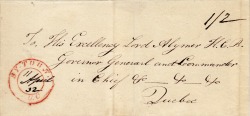 1/2
To His Excellency Lord Aylmer K.C.B.
Governor General and Commander
in Chief &c &c &c
Quebec
April
32